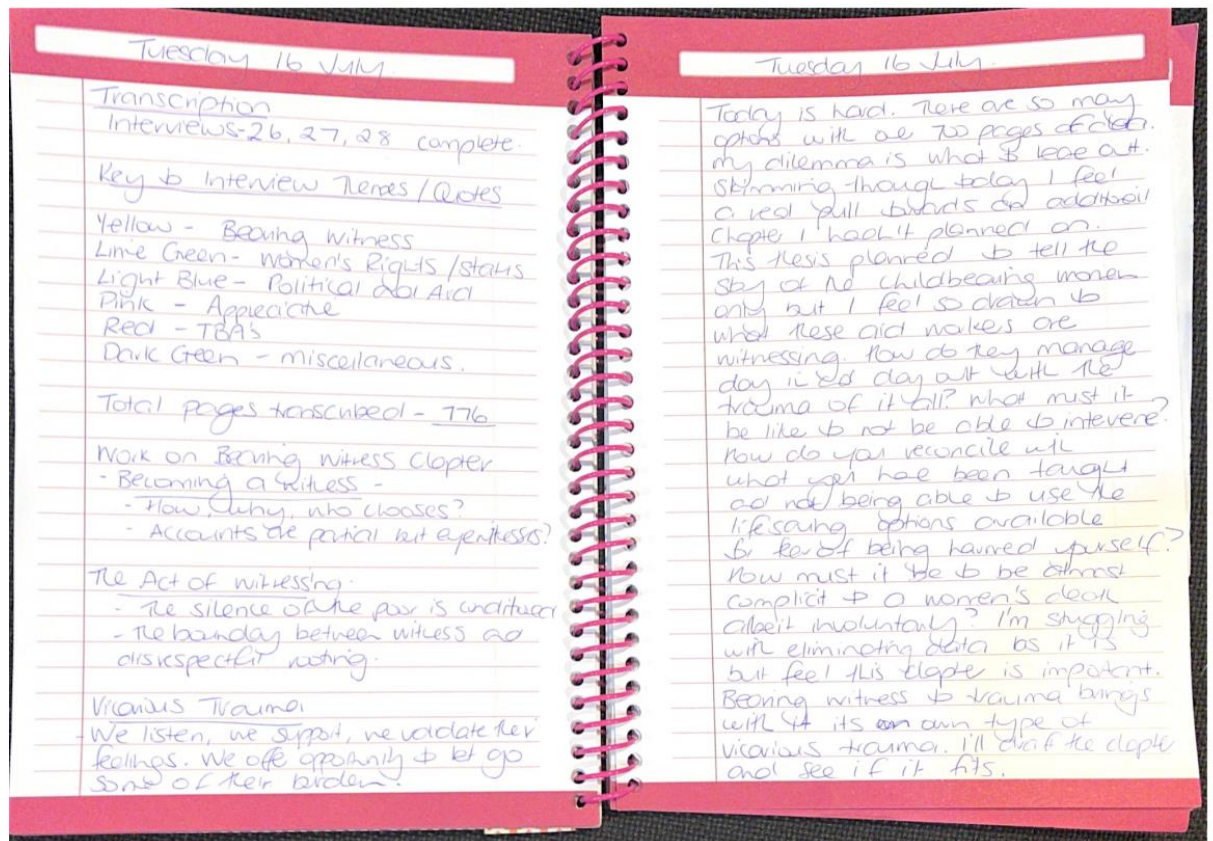 Tuesday 16 July.
Transcription
Interviews-26, 27, 28 complete.
Key to Interview Themes / Quotes
Yellow - Bearing Witness
Lime Green - Women's Rights / status
Light Blue - Political and Aid
Pink - Appreciative
Red - TBA's
Dark Green - miscellaneous.
Total pages transcribed - 776
Work on Bearing witness Chapter
- Becoming a Witness -
- How, why, who chooses?
- Accounts are partial but eyewitnesses?
The Act of witnessing.
- The silence of the poor is
- The boundary between witness and
disrespectful
Vicarious Trauma
- We listen, we support, we validate their
feelings. We offer opportunity to let go
some of their burden.
Tuesday 16 July.
Today is hard. There are so many
options with over 700 pages of data.
my dilemma is what to leave out.
Skimming through today I feel
a real pull towards an additional
Chapter I hadn't planned on.
This thesis planned to tell the
story of the childbearing women
only but I feel so drawn to
what these aid workers are
witnessing. How do they manage
day in and day out with the
trauma of it all? What must it
be like to not be able to intervene?
How do you reconcile with
what you have been taught
and not being able to use the
lifesaving options available
for fear of being harmed yourself?
How must it be to be almost
complicit to a women's death
albeit involuntary? I'm struggling
with eliminating data as it is
but feel this chapter is important.
Bearing witness to trauma brings
with it its own type of
vicarious trauma. I'll draft the chapter
and see if it fits.